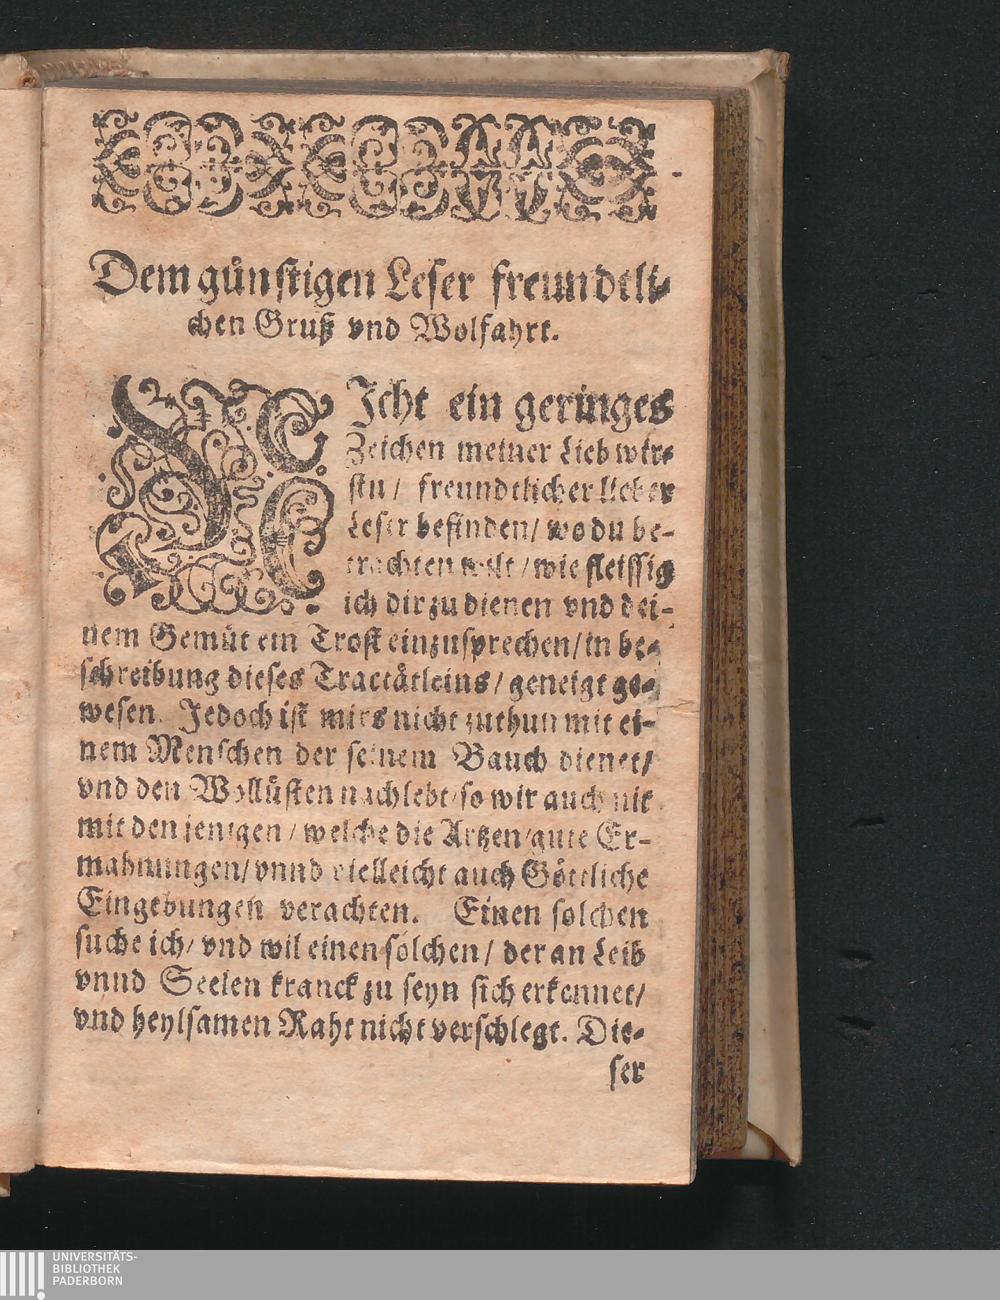 Dem günstigen Leser freundtli-
chen Gruß vnd Wolfahrt.
NJcht ein geringes
Zeichen meiner Lieb wir-
stu / freundtlicher lieber
Leser befinden / wo du be-
trachten wilt / wie fleissig
ich dir zu dienen vnd dei-
nem Gemüt ein Trost einzusprechen / in be-
schreibung dieses Tractätleins / geneigt ge-
wesen. Jedoch ist mirs nicht zuthun mit ei-
nem Menschen der seinem Bauch dienet /
vnd den Wollüsten nachlebt / so wir auch nit
mit den jenigen / welche die Artzen / gute Er-
mahnungen / vnnd vielleicht auch Göttliche
Eingebungen verachten. Einen solchen
suche ich / vnd wil einen sölchen / der an Leib
vnnd Seelen kranck zu seyn sich erkennet /
vnd heylsamen Raht nicht verschlegt. Die-
ser
UNIVERSITÄTS-
BIBLIOTHEK
PADERBORN